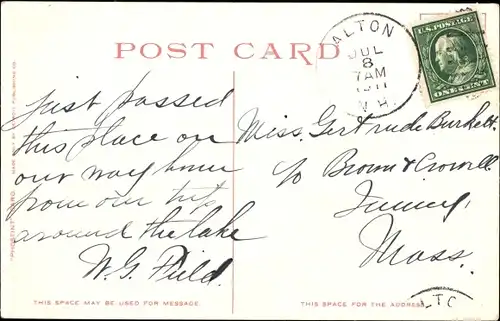 ALTON
JUL
8
7AM
1911
N.H.
U.S. POSTAGE
ONE CENT
POST CARD
Just passed
this place on
our way home
from our trip
around the lake
W. G. Field.
Miss. Gertrude Burkett
c/o Brown & Crowell
Mass.
THIS SPACE MAY BE USED FOR MESSAGE.
THIS SPACE FOR THE ADDRESS.
LTO